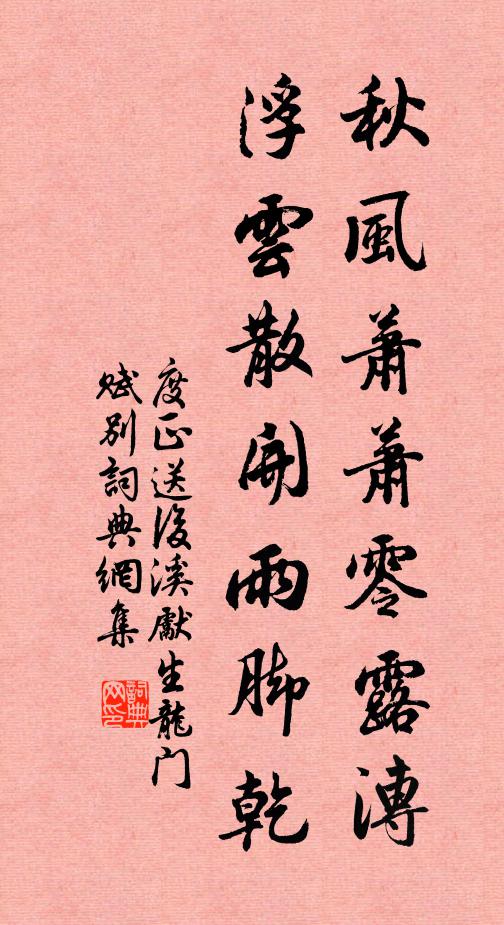 秋風蕭蕭零露漙
浮雲散開雨脚乾
度正送後溪獻生龍门
賦別詞典網集
詞典网印